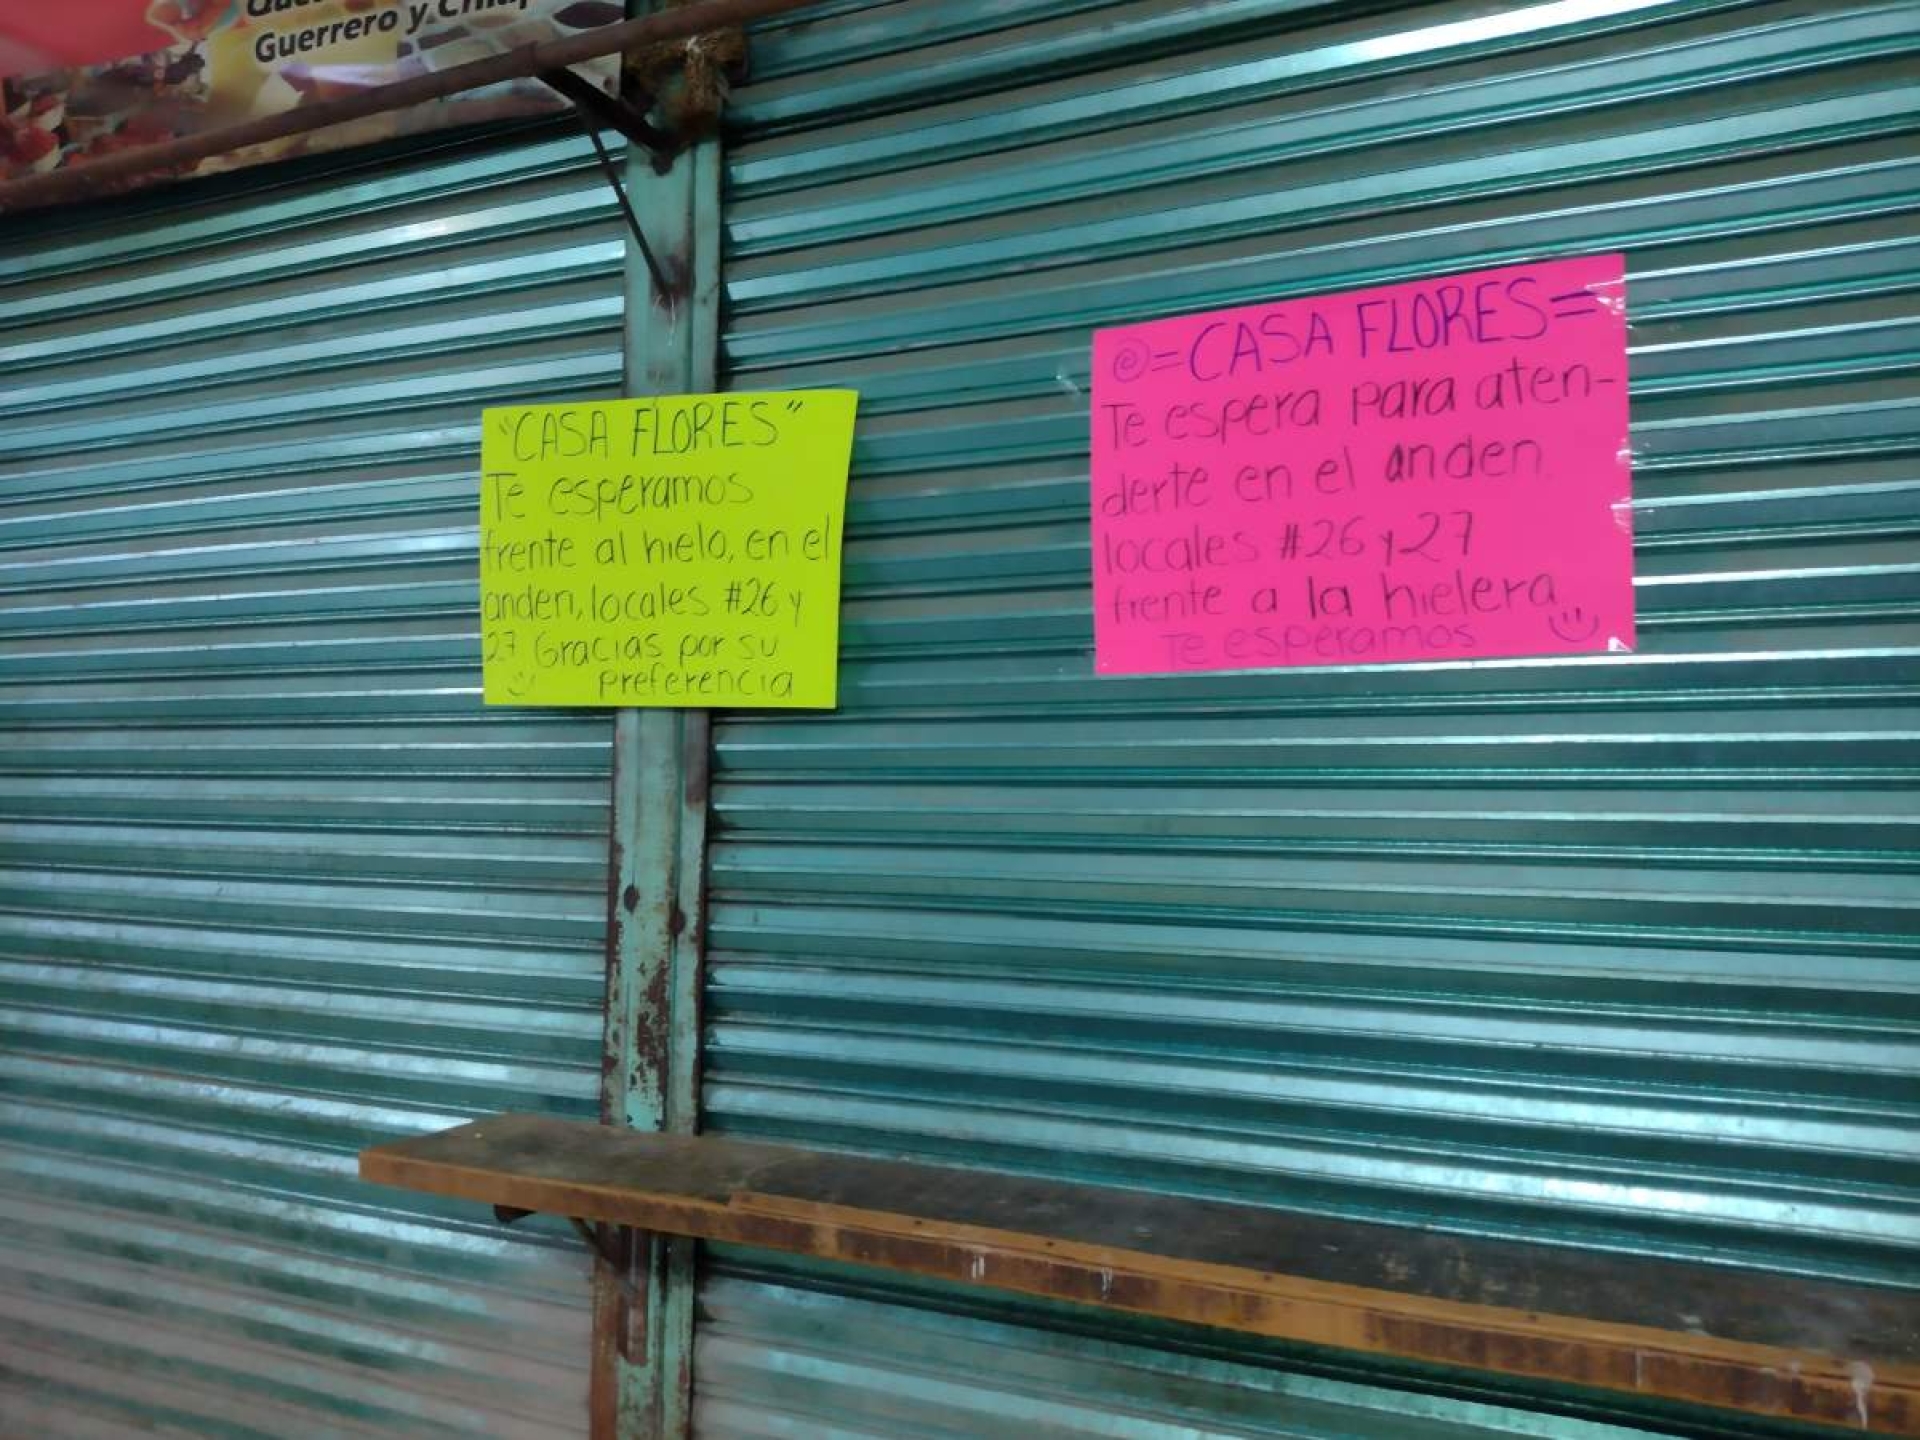 Guerrero y
"CASA FLORES"
Te esperamos
frente al hielo, en el
anden, locales #26 y
27 Gracias por su
preferencia
=CASA FLORES=
Te espera para aten-
derte en el anden
locales #26 y 27
frente a la hielera
Te esperamos